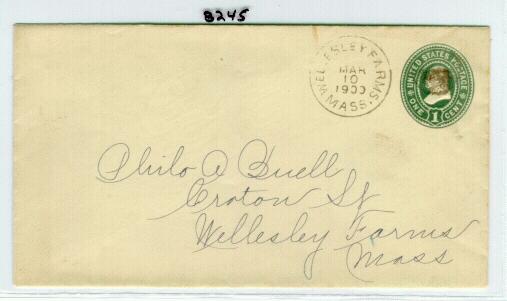 8245
WELLESLEY FARMS,
MAR
10
1900
MASS.
UNITED STATES POSTAGE
ONE 1 CENT
Philo A Buell
Croton St
Wellesley Farms
Mass